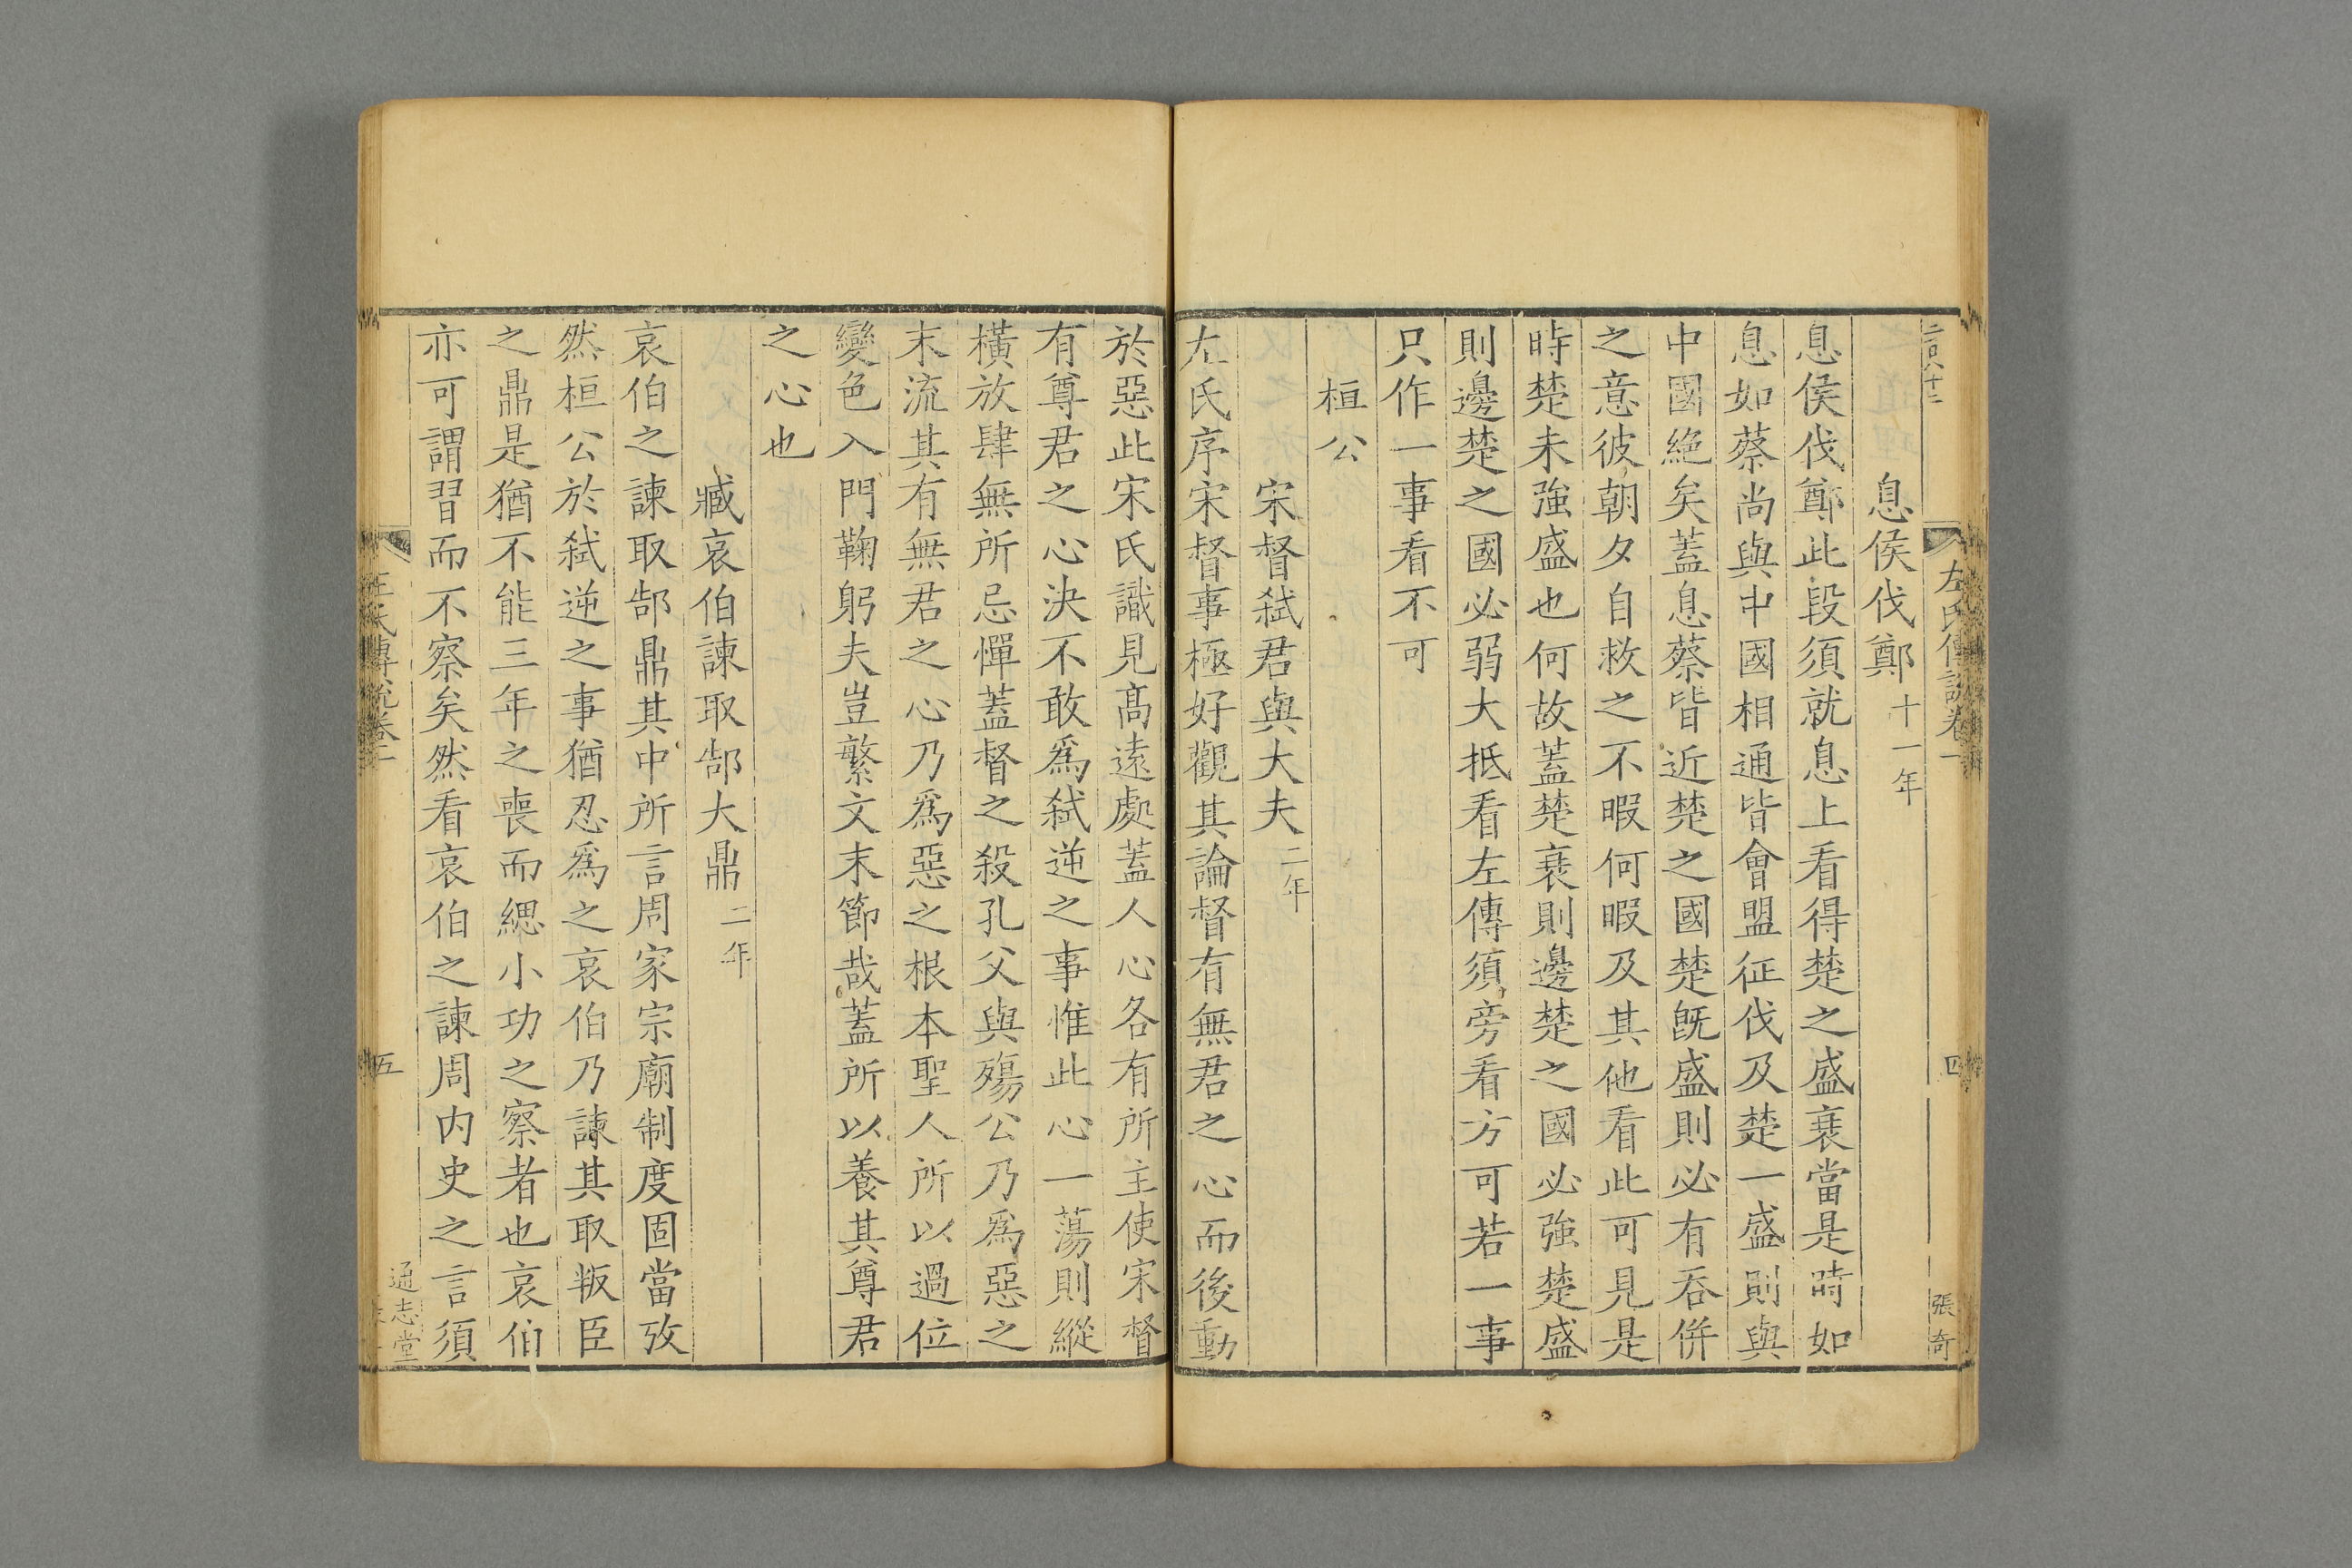 息侯伐鄭十一年
息侯伐鄭此段須就息上看得楚之盛衰當是時如
息如蔡尚與中國相通皆會盟征伐及楚一盛則與
中國絶矣蓋息蔡皆近楚之國楚旣盛則必有吞併
之意彼朝夕自救之不暇何暇及其他看此可見是
時楚未強盛也何故蓋楚衰則邊楚之國必強楚盛
則邊楚之國必弱大抵看左傳須旁看方可若一事
只作一事看不可
桓公
宋督弑君與大夫二年
左氏序宋督事極好觀其論督有無君之心而後動
於惡此宋氏識見髙遠處蓋人心各有所主使宋督
有尊君之心決不敢爲弑逆之事惟此心一蕩則縱
橫放肆無所忌憚蓋督之殺孔父與殤公乃爲惡之
末流其有無君之心乃爲惡之根本聖人所以過位
變色入門鞠躬夫豈繁文末節哉蓋所以養其尊君
之心也
臧哀伯諫取郜大鼎二年
哀伯之諫取郜鼎其中所言周家宗廟制度固當攷
然桓公於弑逆之事猶忍爲之哀伯乃諫其取叛臣
之鼎是猶不能三年之喪而緦小功之察者也哀伯
亦可謂習而不察矣然看哀伯之諫周内史之言須
左氏傳說卷一
四
張奇
五
通志堂